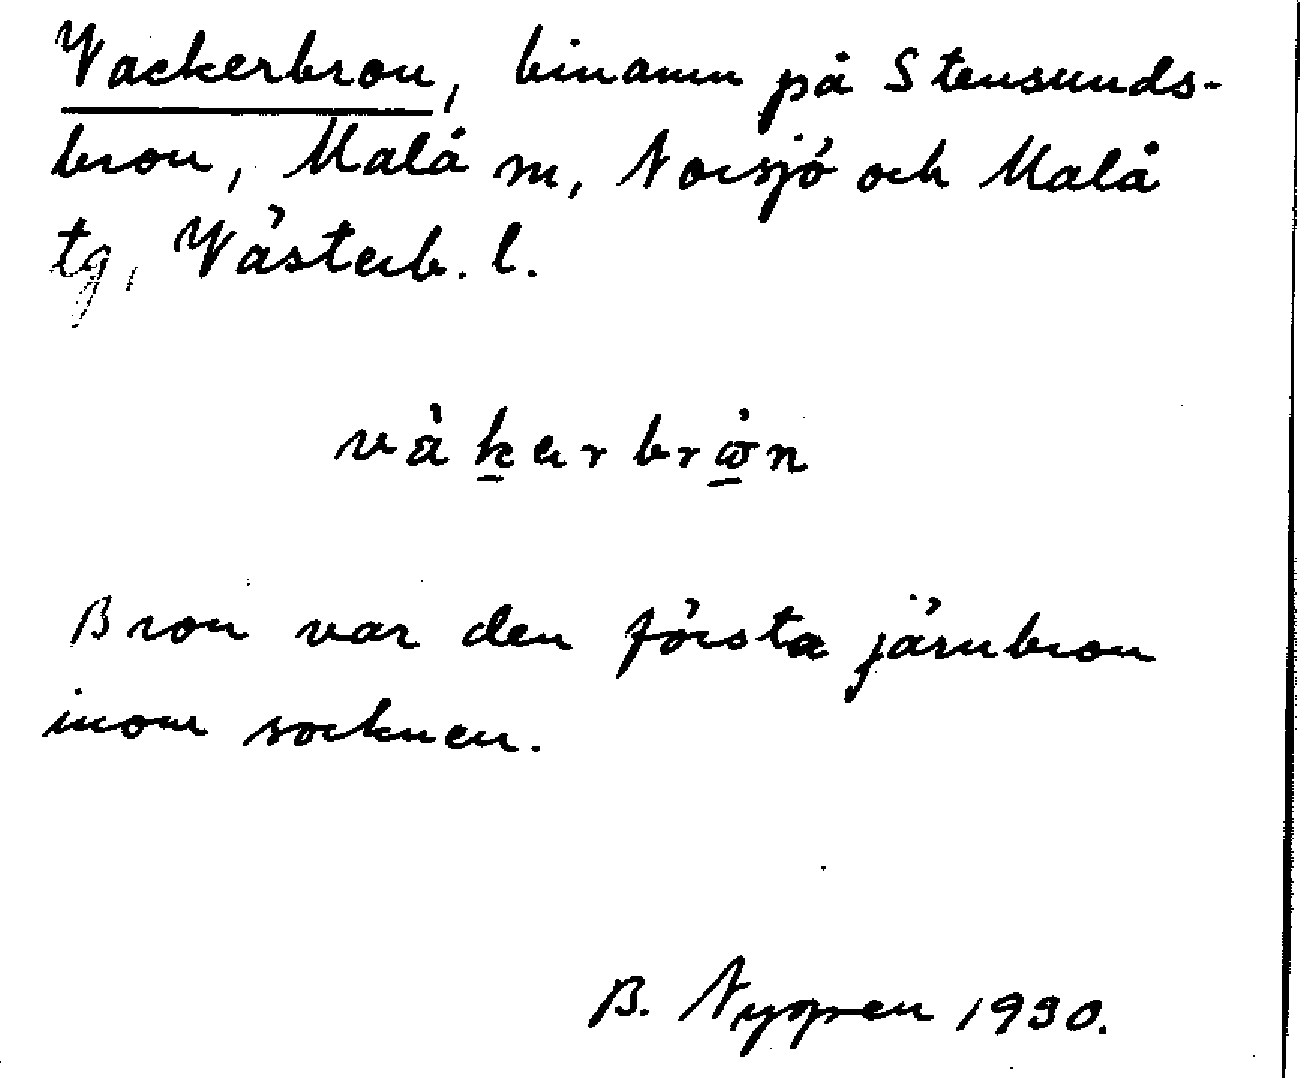 Vackerbron, binamn på Stensunds-
bron, Malå sn, Norsjö och Malå
tg, Västerb. l.
vàkerbrὼn
Bron var den första järnbron
inom socknen.
B. Nygren 1930.